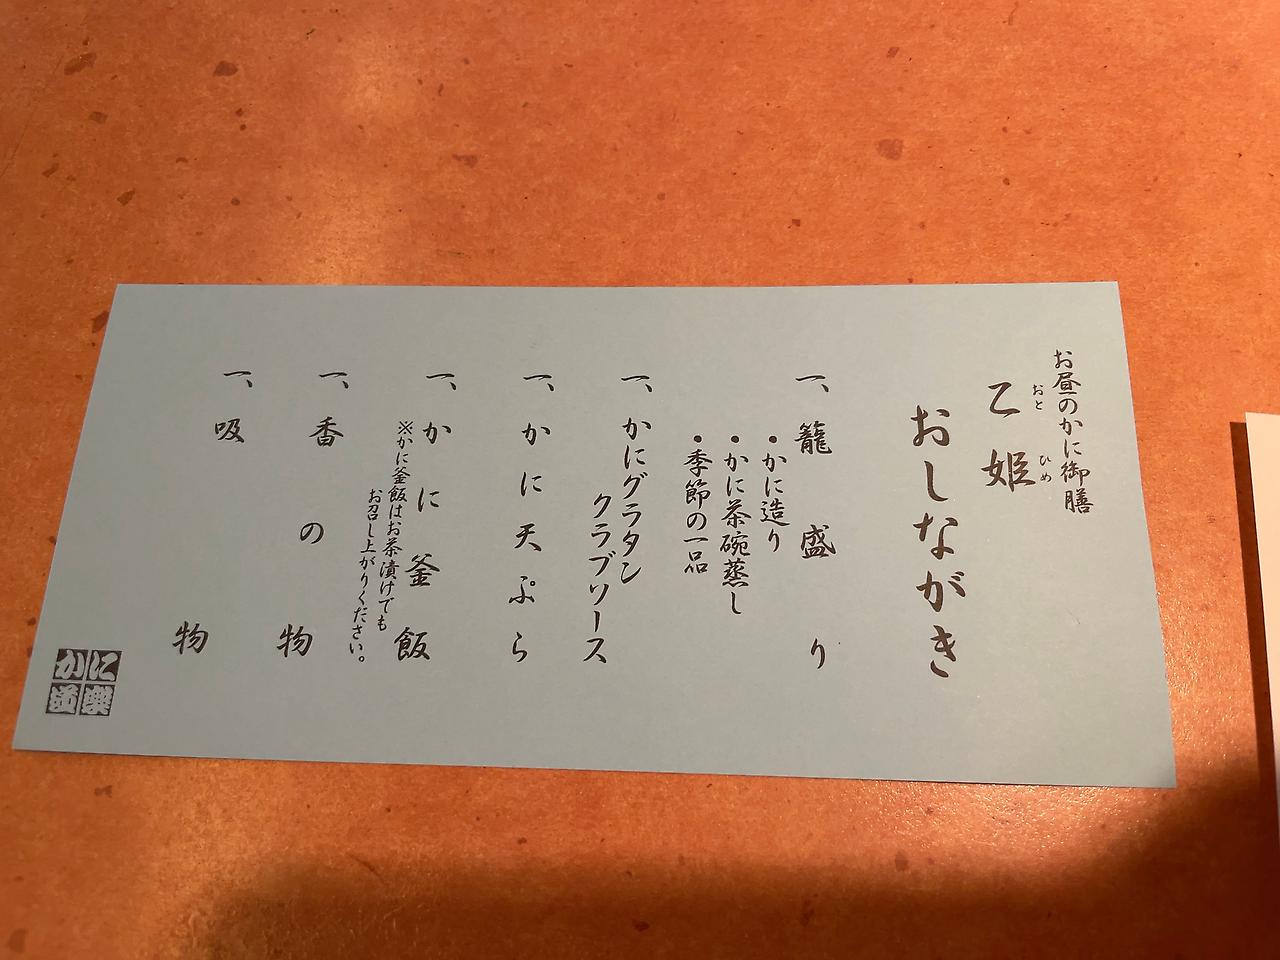 お昼のかに御膳
乙姫
おと ひめ
おしながき
一、籠盛り
・かに造り
・かに茶碗蒸し
・季節の一品
一、かにグラタン
クラブソース
一、かに天ぷら
一、かに釜飯
※かに釜飯はお茶漬けでも
お召し上がりください。
一、香の物
一、吸物
かに道楽